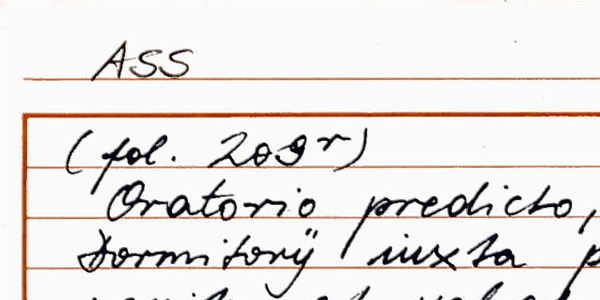 ASS
(fol. 209r)
Oratorio predicto,
Dormitorÿ iuxta